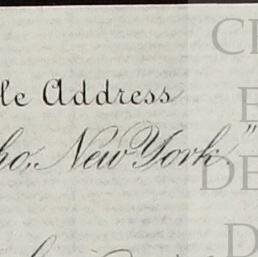 le Address
ho, New York"
C
E
DE
D